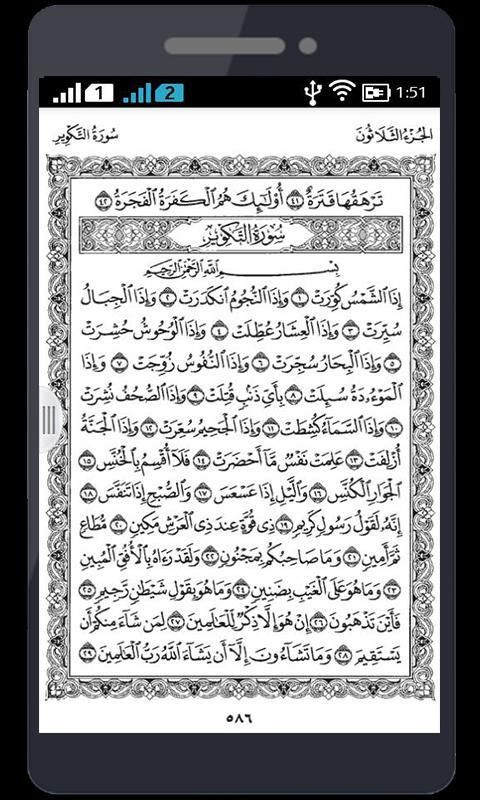 1 2 1:51
سُورَةُ التَّكْوِيرِ الجُزءُ الثَّلَاثُونَ
تَرْهَقُهَا قَتَرَةٌ ٤١ أُوْلَٰٓئِكَ هُمُ ٱلْكَفَرَةُ ٱلْفَجَرَةُ ٤٢
سُورَةُ التَّكْوِيرِ
بِسْمِ ٱللَّهِ ٱلرَّحْمَٰنِ ٱلرَّحِيمِ
إِذَا ٱلشَّمْسُ كُوِّرَتْ ١ وَإِذَا ٱلنُّجُومُ ٱنكَدَرَتْ ٢ وَإِذَا ٱلْجِبَالُ
سُيِّرَتْ ٣ وَإِذَا ٱلْعِشَارُ عُطِّلَتْ ٤ وَإِذَا ٱلْوُحُوشُ حُشِرَتْ
٥ وَإِذَا ٱلْبِحَارُ سُجِّرَتْ ٦ وَإِذَا ٱلنُّفُوسُ زُوِّجَتْ ٧ وَإِذَا
ٱلْمَوْءُۥدَةُ سُئِلَتْ ٨ بِأَىِّ ذَنۢبٍ قُتِلَتْ ٩ وَإِذَا ٱلصُّحُفُ نُشِرَتْ
١٠ وَإِذَا ٱلسَّمَآءُ كُشِطَتْ ١١ وَإِذَا ٱلْجَحِيمُ سُعِّرَتْ ١٢ وَإِذَا ٱلْجَنَّةُ
أُزْلِفَتْ ١٣ عَلِمَتْ نَفْسٌ مَّآ أَحْضَرَتْ ١٤ فَلَآ أُقْسِمُ بِٱلْخُنَّسِ ١٥
ٱلْجَوَارِ ٱلْكُنَّسِ ١٦ وَٱلَّيْلِ إِذَا عَسْعَسَ ١٧ وَٱلصُّبْحِ إِذَا تَنَفَّسَ ١٨
إِنَّهُۥ لَقَوْلُ رَسُولٍ كَرِيمٍ ١٩ ذِى قُوَّةٍ عِندَ ذِى ٱلْعَرْشِ مَكِينٍ ٢٠ مُّطَاعٍ
ثَمَّ أَمِينٍ ٢١ وَمَا صَاحِبُكُم بِمَجْنُونٍ ٢٢ وَلَقَدْ رَءَاهُ بِٱلْأُفُقِ ٱلْمُبِينِ
٢٣ وَمَا هُوَ عَلَى ٱلْغَيْبِ بِضَنِينٍ ٢٤ وَمَا هُوَ بِقَوْلِ شَيْطَٰنٍ رَّجِيمٍ ٢٥
فَأَيْنَ تَذْهَبُونَ ٢٦ إِنْ هُوَ إِلَّا ذِكْرٌ لِّلْعَٰلَمِينَ ٢٧ لِمَن شَآءَ مِنكُمْ أَن
يَسْتَقِيمَ ٢٨ وَمَا تَشَآءُونَ إِلَّآ أَن يَشَآءَ ٱللَّهُ رَبُّ ٱلْعَٰلَمِينَ ٢٩
٥٨٦